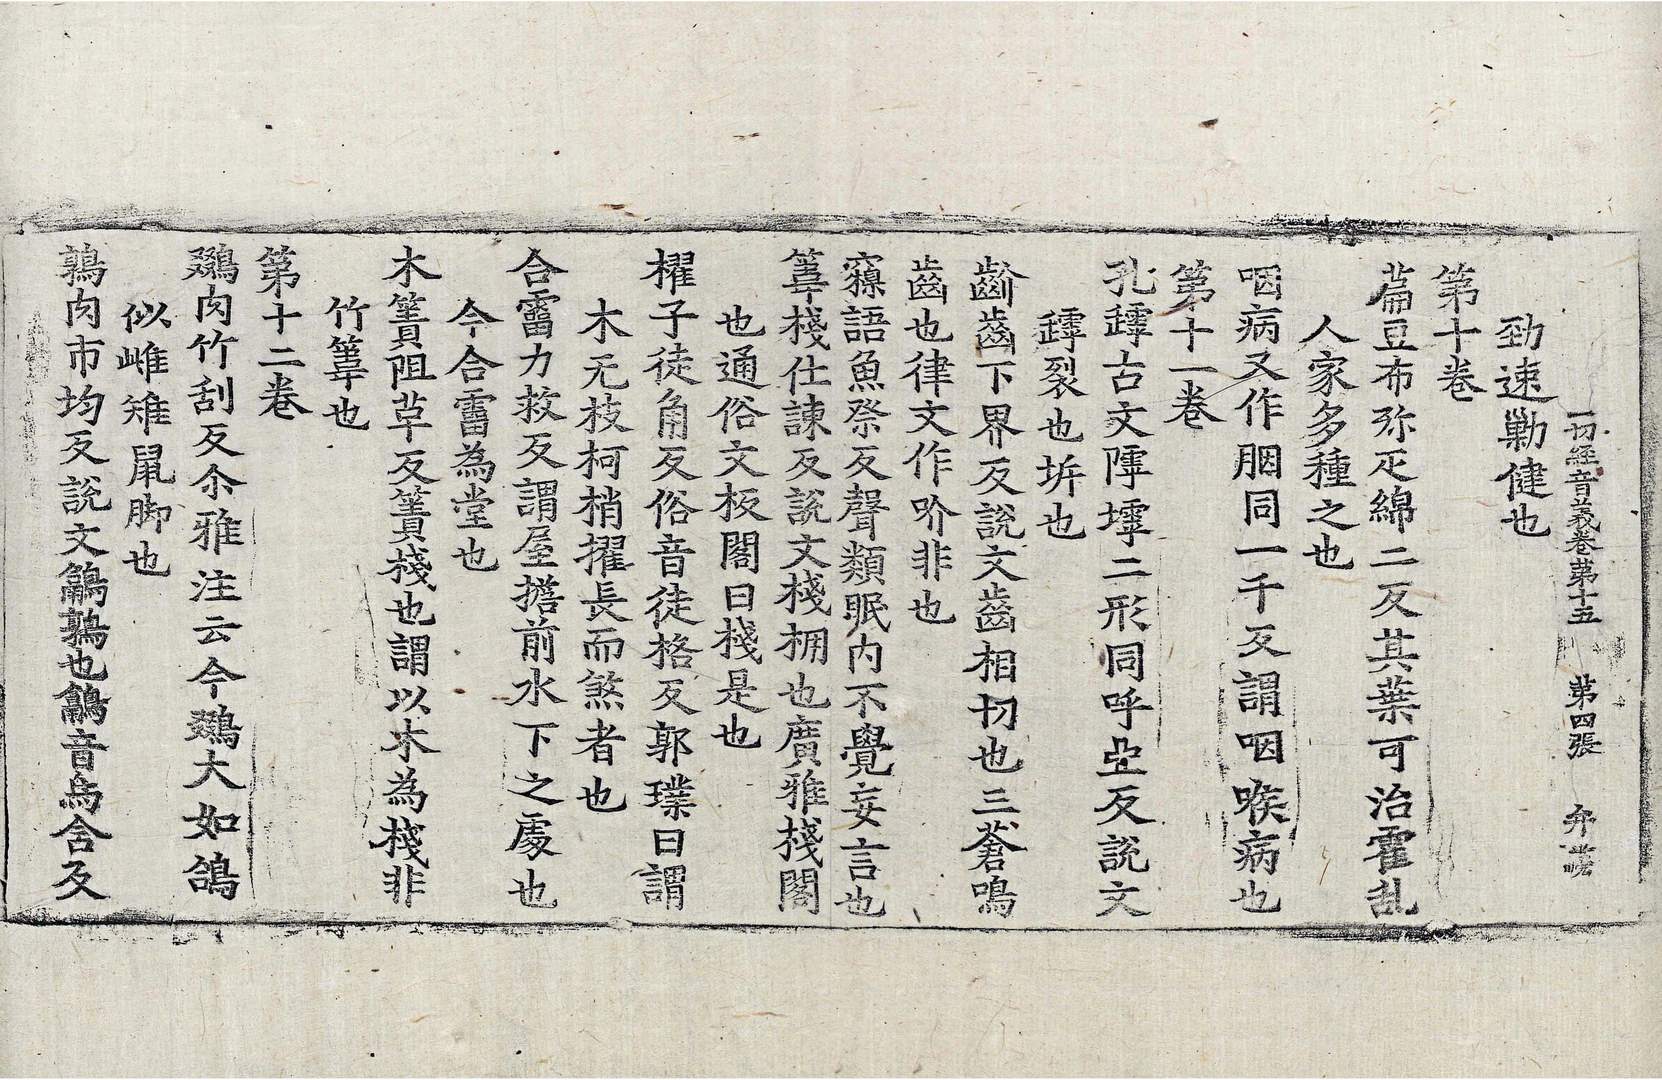 一切經音義卷第十五　第四張　弁
勁速勦健也
第十卷
藊豆布殄疋綿二反其葉可治霍乱
人家多種之也
咽病又作胭同一千反謂咽喉病也
第十一卷
孔罅古文㙤墟二形同呼亞反說文
罅裂也坼也
齘齒下界反說文齒相切也三蒼鳴
齒也律文作吤非也
寱語魚祭反聲類眠內不覺妄言也
䈼棧仕諫反說文棧棚也廣雅棧閣
也通俗文板閣曰棧是也
櫂子徒角反俗音徒格反郭璞曰謂
木无枝柯梢擢長而煞者也
合霤力救反謂屋檐前水下之處也
今合霤為堂也
木簀阻草反簀棧也謂以木為棧非
竹䈼也
第十二卷
鵽肉竹刮反尒雅注云今鵽大如鴿
似雌雉鼠脚也
鶉肉市均反說文鶉也音烏含反